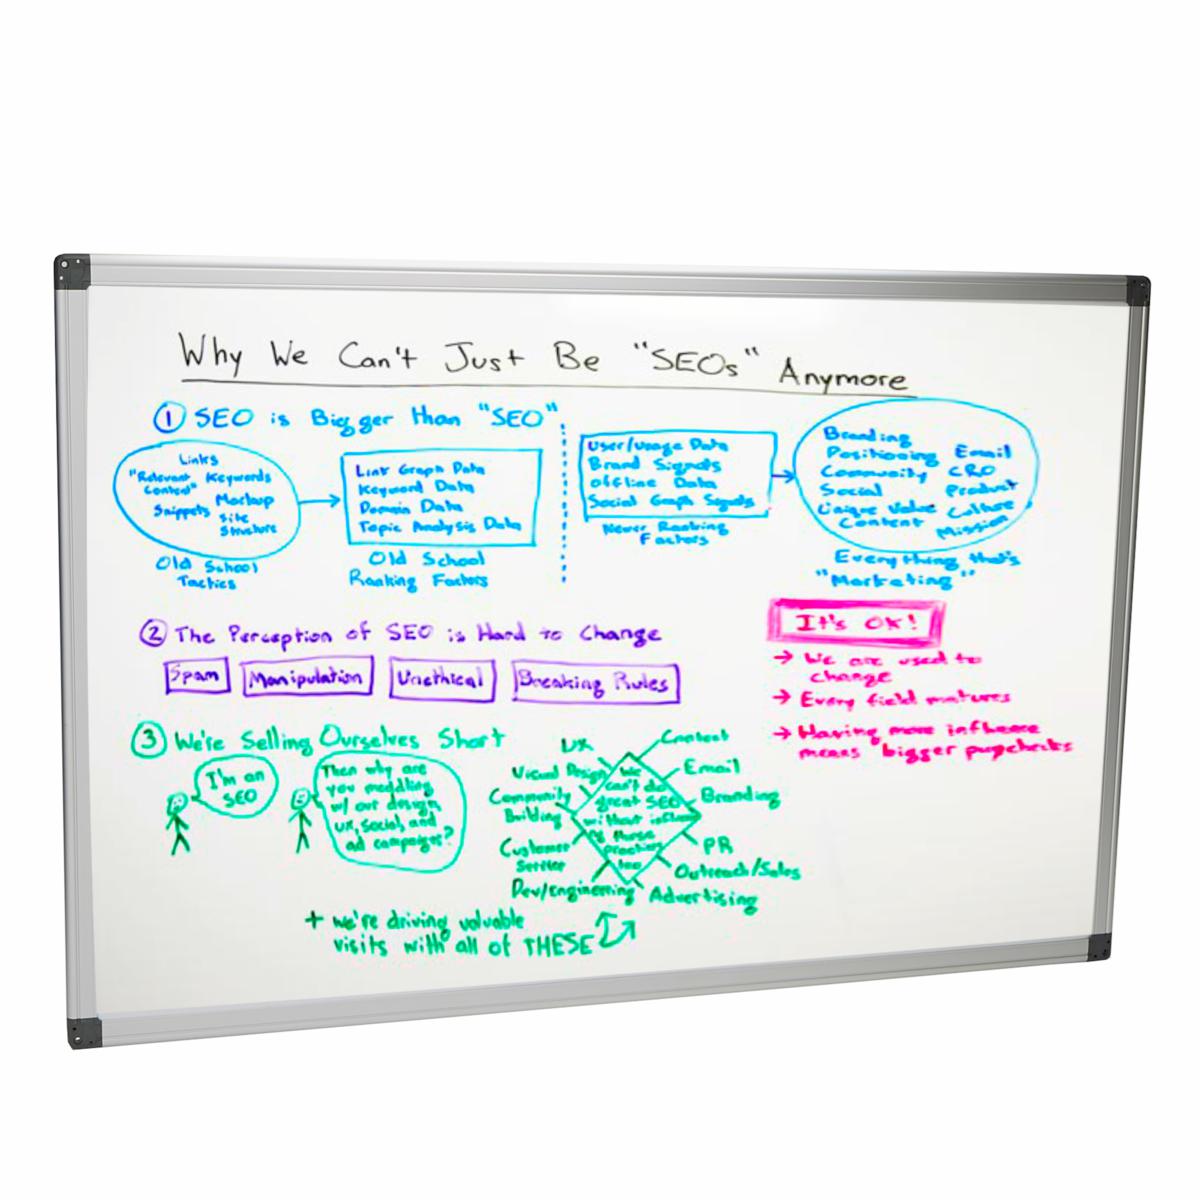 Why We Can't Just Be "SEOs" Anymore
① SEO is Bigger than "SEO"
Links
"Relevant Keywords
Content"
Snippets Markup
Site
Structure
Old School
Tactics
Link Graph Data
Keyword Data
Domain Data
Topic Analysis Data
Old School
Ranking Factors
User/Usage Data
Brand Signals
Offline Data
Social Graph Signals
Newer Ranking
Factors
Branding
Positioning Email
Community CRO
Social Product
Unique Value Culture
Content Mission
Everything that's
"Marketing"
② The Perception of SEO is Hard to Change
Spam
Manipulation
Unethical
Breaking Rules
It's OK!
→ We are used to
change
→ Every field matures
→ Having more influence
means bigger paychecks
③ We're Selling Ourselves Short
I'm an
SEO
Then why are
you meddling
w/ our design,
UX, social, and
ad campaigns?
UX
Visual Design
Community
Building
Customer
Service
Dev/Engineering
Content
Email
Branding
PR
Outreach/Sales
Advertising
We
can't do
great SEO
without influencing
these
practices
too
+ we're driving valuable
visits with all of THESE